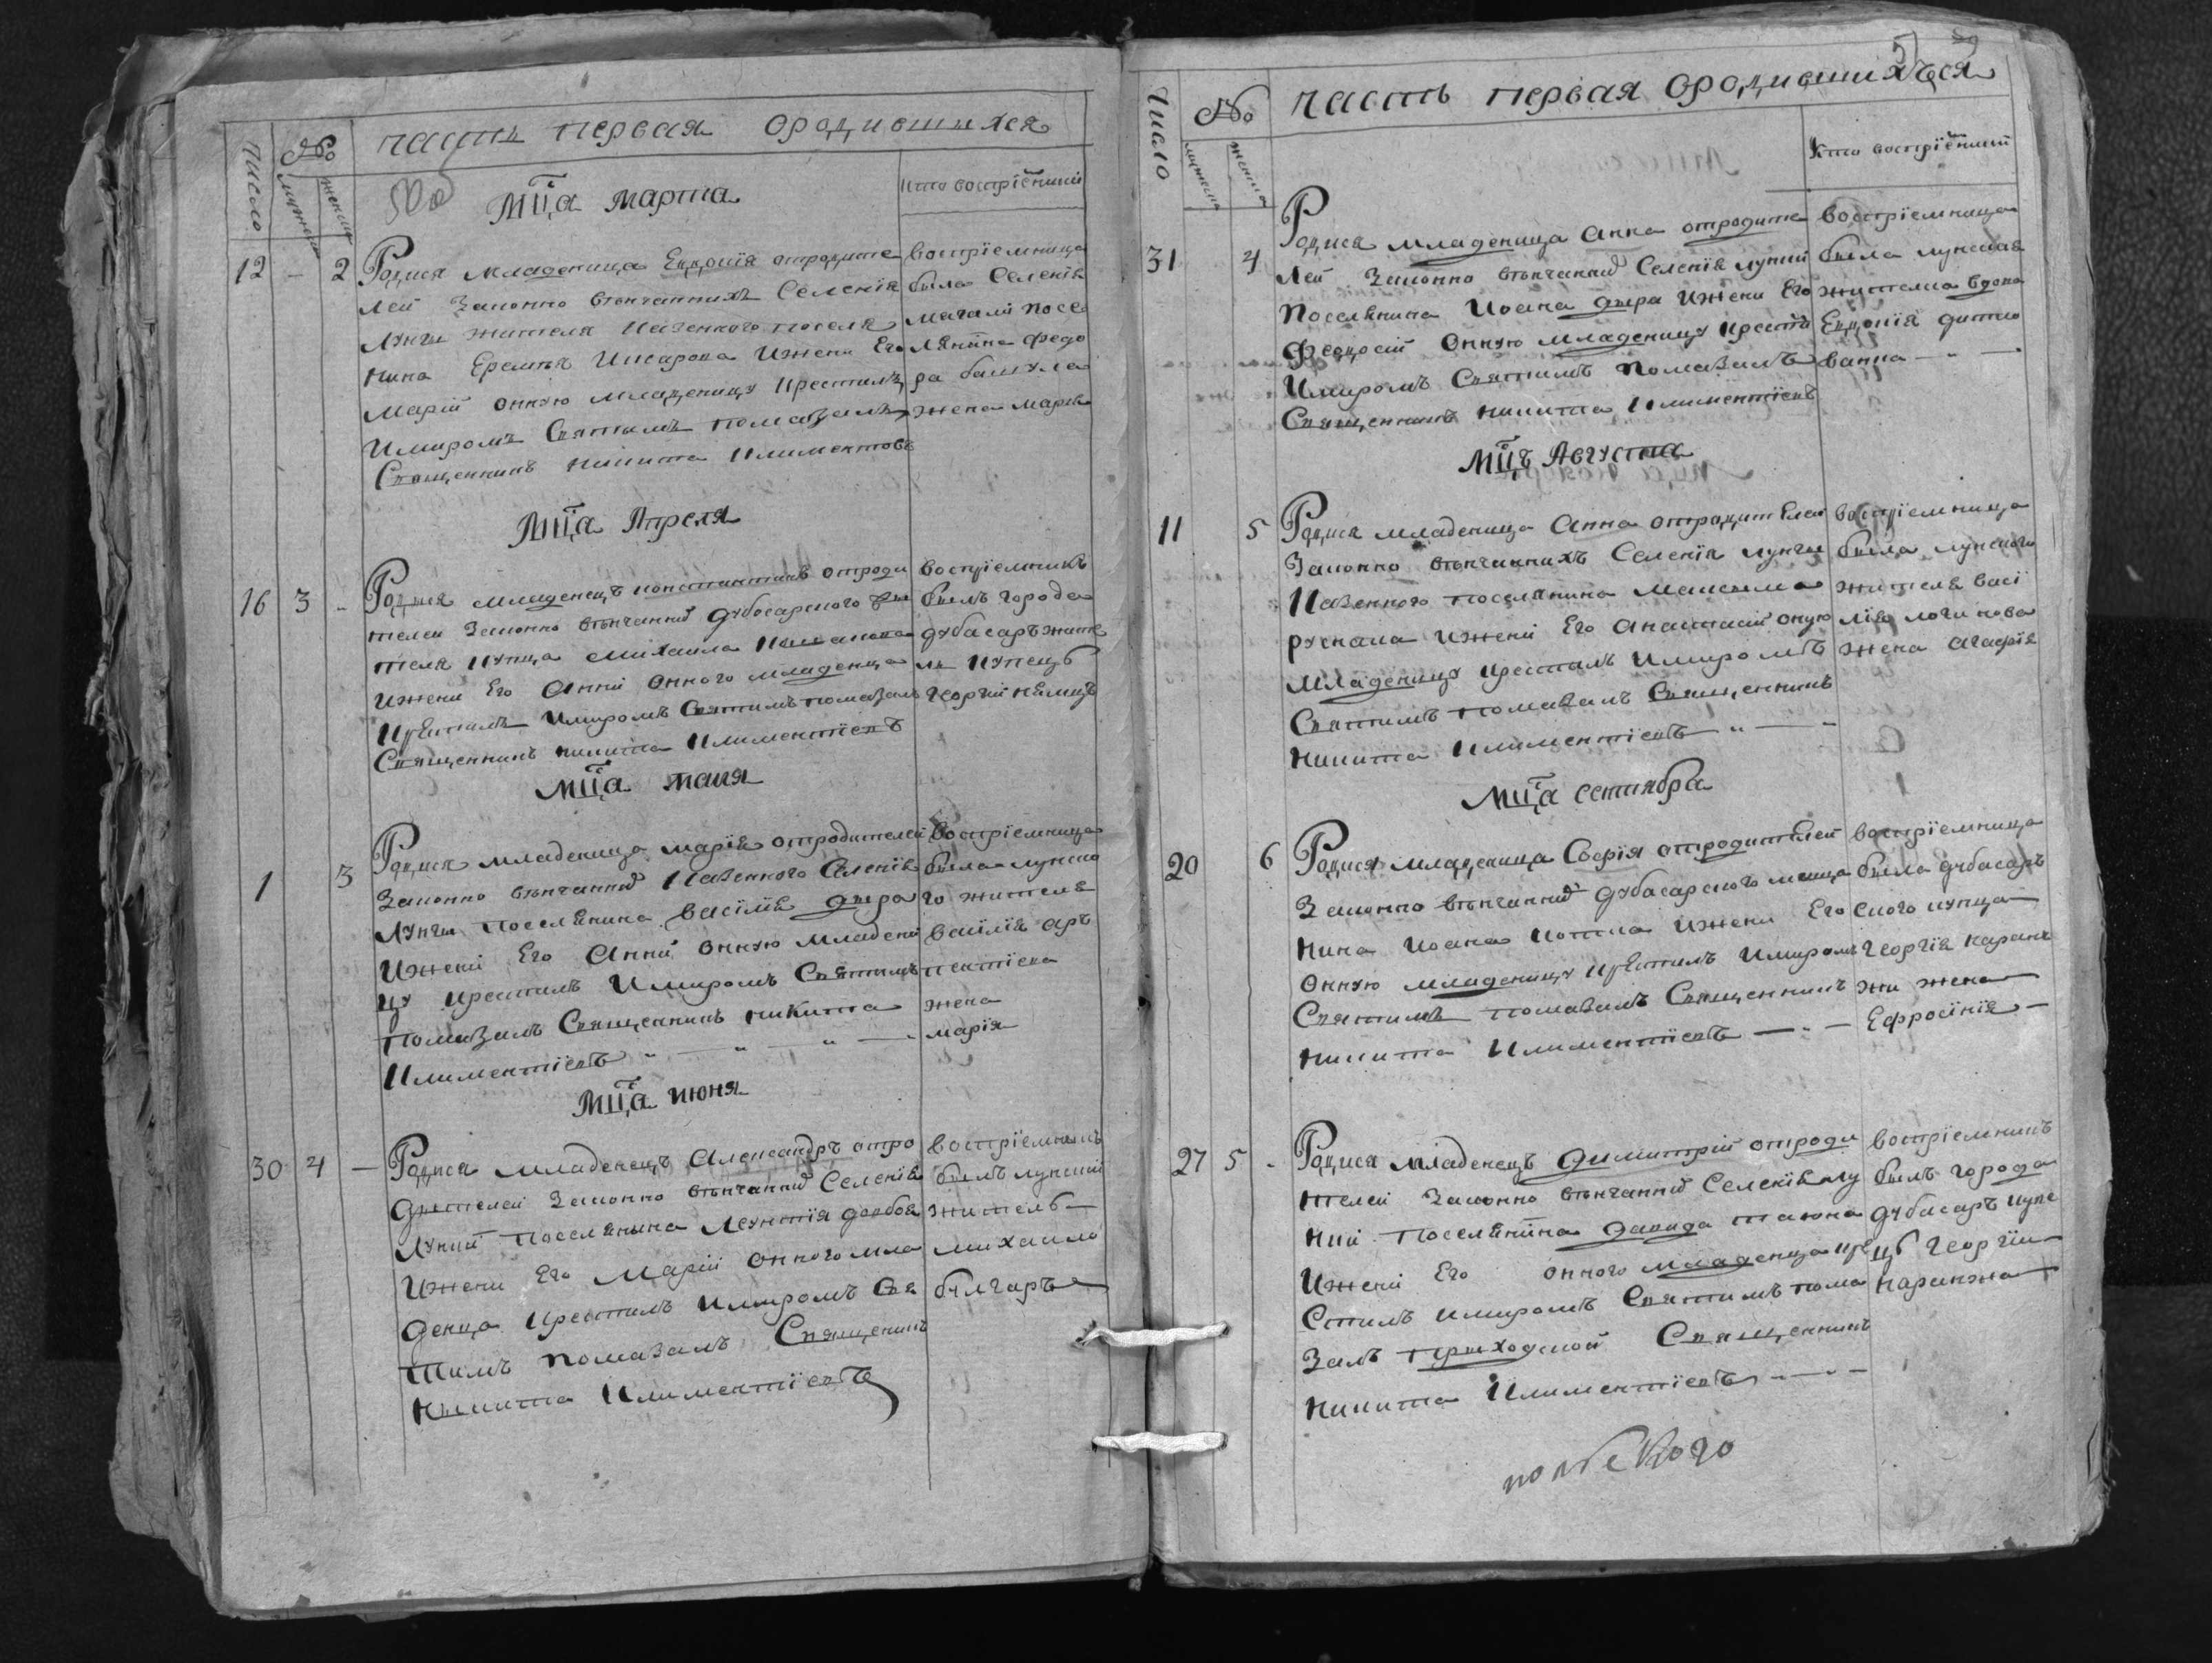 часть первая ородившихся
Число
№
мужеска
женска
Мца марта
кто восприемники
12 – 2
Родися младеница Евдокія отродите
лей законно втьнчаннихъ Селенія
Лунги жителя казенного поселя
нина Еремтья Писарова ижени Его
Марій онную младеницу крестилъ
имиромъ Святимъ помазалъ
Священникъ никита Климентовъ
воспріемница
была Селенія
магали посе
лянина федо
ра башула
жена марія
Мца Апреля
16 3 –
Родися младенецъ константинъ отроди
телей законно втьнчанний дубосарского
теля купца Михаила
ижени Его Анній онного младенца
крестилъ имиромъ Святимъ помазалъ
Священникъ никита Климентіевъ
воспріемникъ
билъ города
дубасаръ жите
ль купецъ
Георгій нямцъ
мца маия
1 3
Родися младеница марія отродителей
законно втьнчанний казенного Селенія
Лунги поселянина василія дира
ижені Его Анній онную младени
цу крестилъ имиромъ Святимъ
помазалъ Священникъ никита
Климентіевъ
воспріемница
била лунско
го жителя
василія ар
пентіева
жена
марія
Мца июня
30 4 –
Родися младенецъ Александръ отро
дителей законно втьнчанний Селенія
Лункій поселянина Леунтія довбоя
ижени Его Марій онного мла
денца крестилъ имиромъ Свя
тимъ помазалъ Священикъ
никита Климентіевъ
воспріемникъ
билъ лунскій
житель
михаило
булгаръ
51
Число
№
часть первая ородившихъся
мужеска
женска
Кто воспріемники
31 4
Родися младеница Анна отродите
лей законно втьнчанний Селенія лункій
поселянина Иоана дира ижени Его
Феодосій онную младеницу крести
имиромъ Святимъ помазалъ
Священникъ никита Климентіевъ
воспріемница
била лунская
жителка вдова
Евдокія дитко
ванна
Мцъ Августа
11 5
Родися младеница Анна отродителей
законно втьнчаннихъ Селенія лунги
казенного поселянина Максима
руснала ижені Его Анастасій оную
младеницу крестилъ имиромъ
Святимъ помазалъ Священникъ
никита Климентіевъ
воспріемница
била лунского
жителя васі
лію логинова
жена Агафія
Мца сентября
20 6
Родися младеница Софія отродителей
законно втьнчанний дубасарского меща
нина Иоана котила ижени Его
онную младеницу крестилъ имиромъ
Святимъ помазалъ Священникъ
никита Климентіевъ
воспріемница
била дубасаръ
ского купца
Георгія каран
жи жена
Ефросінія
27 5 –
Родися младенецъ димитрій отроди
телей законно втьнчанний Селенія лу
ний поселянина давида таюна
ижені Его онного младенца кре
стилъ имиромъ Святимъ пома
залъ приходской Священникъ
никита Климентіевъ
воспріемникъ
билъ города
дубасаръ купе
цъ Георгій
каранжа